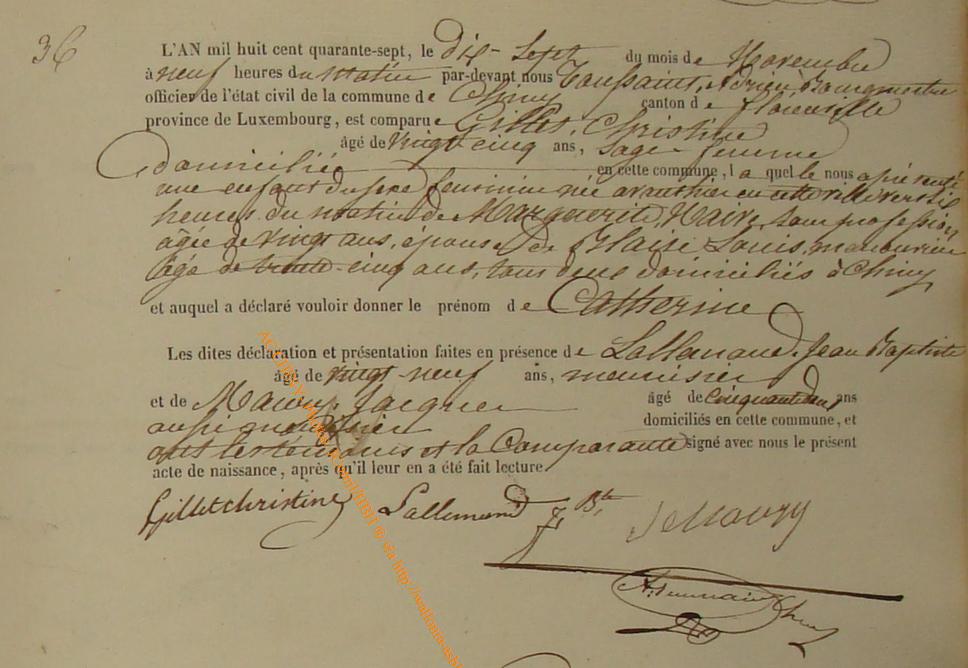 36
L'AN mil huit cent quarante-sept, le dix-Sept du mois de Novembre
à neuf heures du matin par-devant nous Toussaint, Adrien Bourgmestre
officier de l'état civil de la commune de Chiny canton de florenville
province de Luxembourg, est comparue Gillet, Christine
âgé de vingt cinq ans, Sage-femme
domiciliée en cette commune, la quelle nous a présenté
une enfant du sexe féminin née en cette ville vers six
heures du matin de Marguerite, sans profession
âgée de vingt ans, épouse de Louis, manouvrier
âgé de trente-cinq ans, tous deux domiciliés à Chiny
et auquel a déclaré vouloir donner le prénom de Catherine
Les dites déclaration et présentation faites en présence de Lallemand, Jean Baptiste
âgé de vingt-neuf ans, menuisier
et de Maury, Jacques âgé de Cinquante deux ans
aussi menuisier domiciliés en cette commune, et
ont les témoins et la Comparante signé avec nous le présent
acte de naissance, après qu'il leur en a été fait lecture
Gillet christine Lallemand J. Bte J Maury